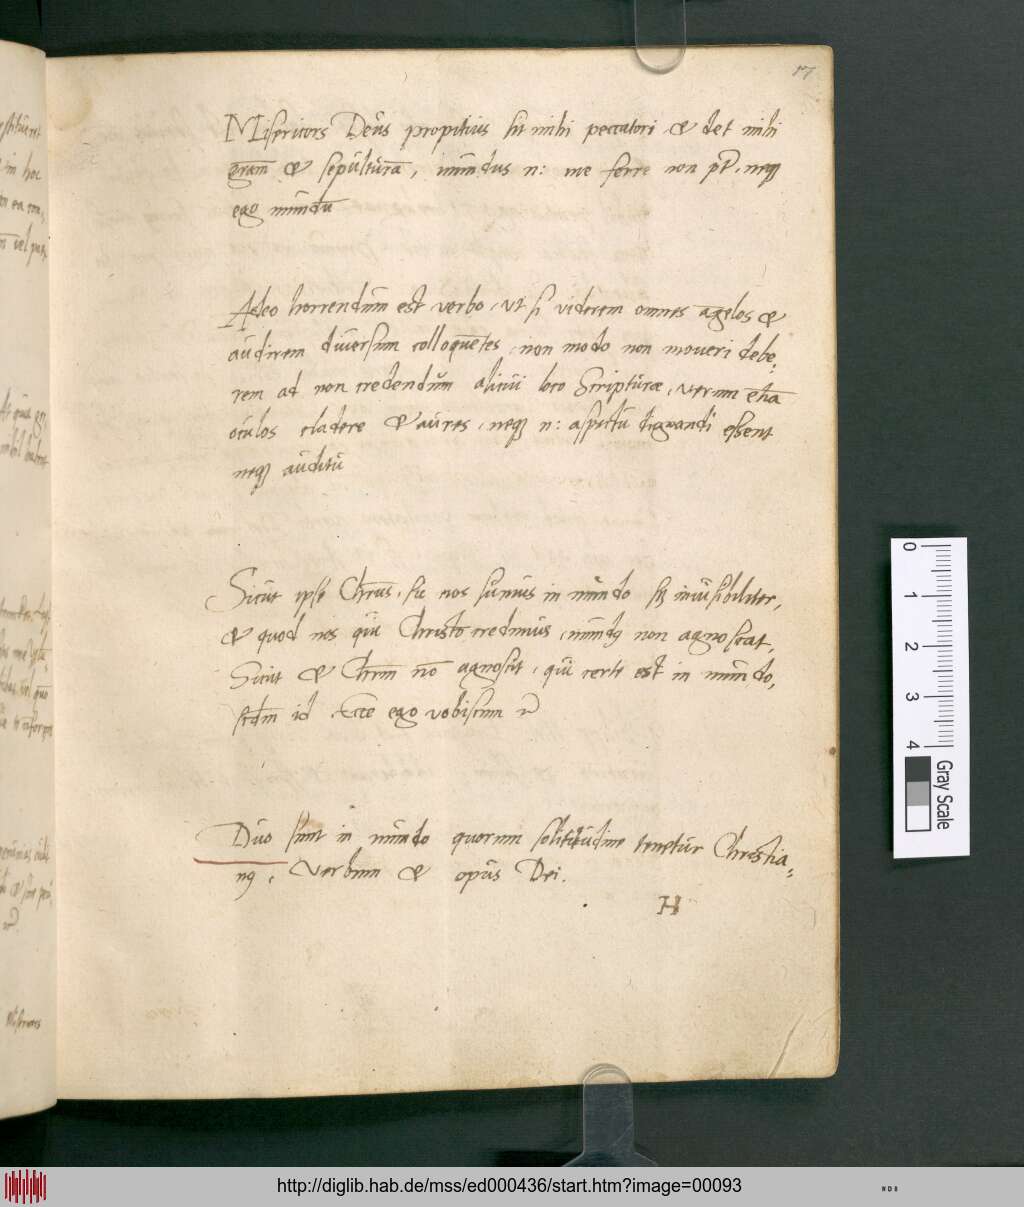 17
Misericors Deus propitius sit mihi peccatori & det mihi
gram̄ & sepulturā, mundus n: me ferre non pt, neq
ego mundū
Adeo horrendum est verbo, ut si viderem omnes āgelos &
audirem diversum colloquētes, non modo non moveri debe,
rem ad non credendum alicui loco Scripturæ, verum etiā
oculos cladere & aures, neq n: aspectu dignandi essent
neq auditu
Sicut ipse Chrūs, sic nos sumus in mundo sz invisibiliter,
& quod nos qui Christo credimus, mundus non agnoscat,
Sicut & Chrm̄ nō agnoscit, qui certe est in mundo,
scdm̄ id Ecce ego vobiscum
Duo sunt in mundo quorum solitudine tenetur Christia=
nus, Verbum & opus Dei.
H
at
in hoc
ea
vel
Misericors
0
1
2
3
4
Gray Scale
http://diglib.hab.de/mss/ed000436/start.htm?image=00093